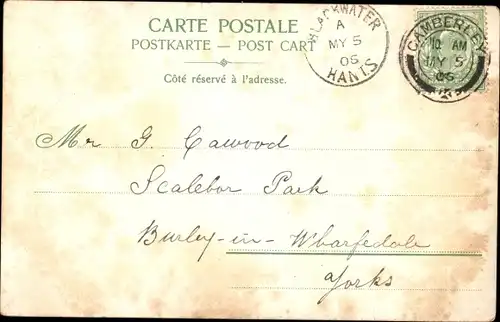 CARTE POSTALE
POSTKARTE — POST CART
Côté réservé à l'adresse.
BLACKWATER
A
MY 5
06
HANTS
CAMBERLEY
10 AM
MY 5
06
Mr G. Cawood
Scalebor Park
Burley-in-Wharfedale
Yorks